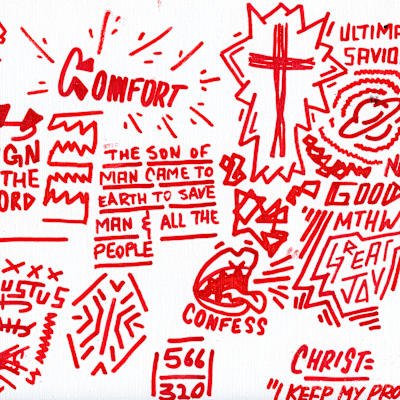 COMFORT
ULTIMA
SAVIO
IGN
THE
ORD
THE SON OF
MAN CAME TO
EARTH TO SAVE
MAN & ALL THE
PEOPLE
GOOD
MTHW
GREAT
JOY
CONFESS
USTUS
566
320
CHRIST=
"I KEEP MY PRO